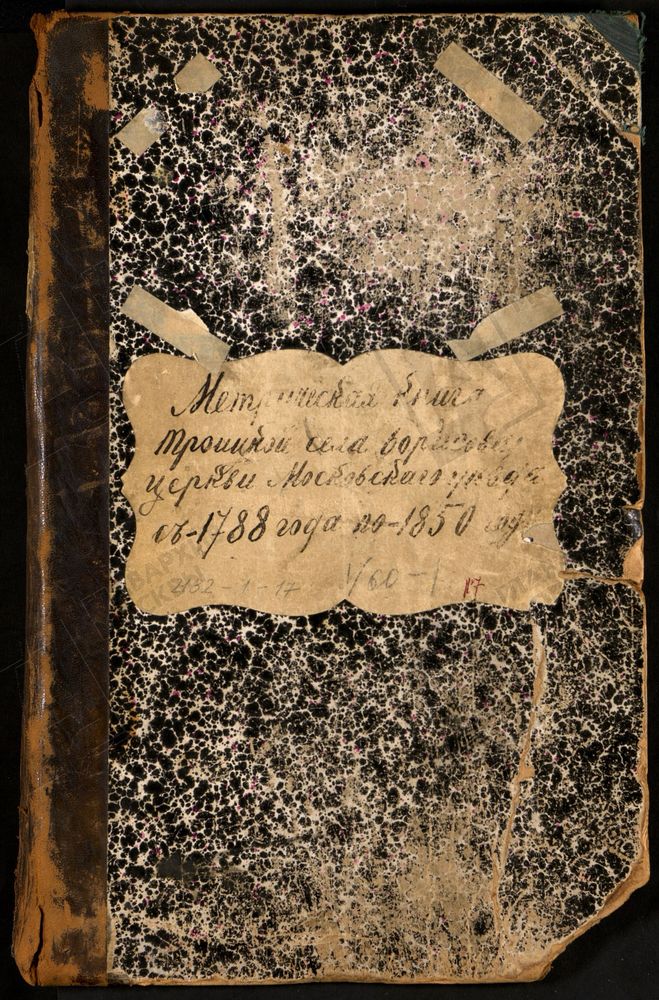 Метрическая книга
Троицкой села Борисова
церкви Московскаго уезда
съ-1788 года по-1850 год
2132-1-17 1/60-1 17